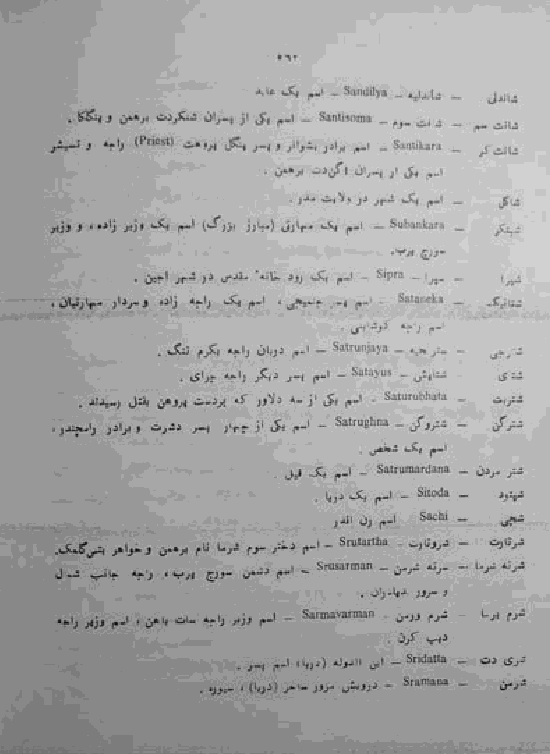 ۵۶۲
شاندلی — شاندلیه — Sandilya — اسم یک عابد
شانت سم — شانت سوم — Santisoma — اسم یکی از پسران شنکردت برهمن و پنگکا.
شانت‌کر — Santikara — اسم برادر بشرانر و پسر پنگل پروهت (Priest) راجه و تسیشر
اسم یکی از پسران اگن‌دت برهمن.
شاکل — اسم یک شهر در ولایت مدر.
شبنکر — Subankara — اسم یک مهارتی (مبارز بزرگ) اسم یک وزیر زاده، و وزیر
سورج پربه.
شپرا — سپرا — Sipra — اسم یک رود خانه مقدس در شهر اجین.
شتانیک — Sataneka — اسم پسر جنمیجی، اسم یک راجه زاده و سردار مهارتیان.
اسم راجه کوشامبی.
شترنجی — سترنجیه — Satrunjaya — اسم دربان راجه بکرم تنگ.
شتای — شتایش — Satayus — اسم پسر دیگر راجه
شتربت — Saturobhata — اسم یکی از سه دلاور که بردست پروهن بقتل رسیدند.
شترگن — شتروگن — Satrughna — اسم یکی از چهار پسر دشرت و برادر رامچندر،
اسم یک شخص.
شتر مردن — Satrumardana — اسم یک فیل.
شیتود — Sitoda — اسم یک دریا.
شچی — Sachi — اسم زن اندر
شرتارت — شروتارت — Srutartha — اسم دختر سوم شرما نام برهمن و خواهر بتس‌گلمک.
شرته شرما — سرته شرمن — Srusarman — اسم دشمن سورج پربه، راجه جانب شمال
و سرور بدیادهران.
شرم برما — شرم ورمن — Sarmavarman — اسم وزیر راجه سات باهن، اسم وزیر راجه
دیپ کرن.
شری دت — Sridatta — ابی الدوله (دریا) اسم پسر.
شرمن — Sramana — درویش مزور ساحر (دریا)، سیوره.